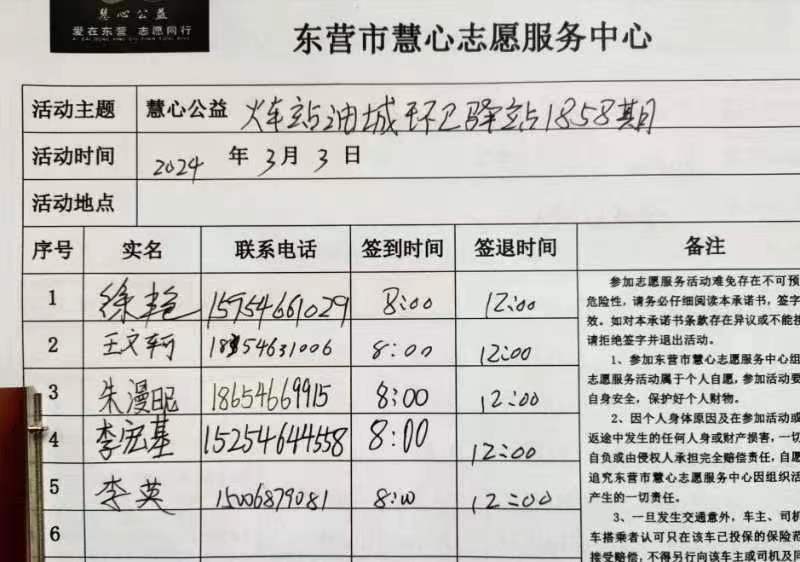 慧心公益
爱在东营 志愿同行
东营市慧心志愿服务中心
活动主题 慧心公益 火车站油城环卫驿站1858期
活动时间 2024 年 3 月 3 日
活动地点
序号 实名 联系电话 签到时间 签退时间 备注
1 徐艳 15954661029 8:00 12:00
2 王文轲 54631006 8:00 12:00
3 朱漫昵 18654669915 8:00 12:00
4 李宏基 15254644558 8:00 12:00
5 李英 15006879081 8:00 12:00
6
参加志愿服务活动难免存在不可预
危险性，请务必仔细阅读本承诺书，签字
效。如对本承诺书条款存在异议或不能接
请拒绝签字并退出活动。
1、参加东营市慧心志愿服务中心组
志愿服务活动属于个人自愿，参加活动要
自身安全，保护好个人财物。
2、因个人身体原因及在参加活动或
返途中发生的任何人身或财产损害，一切
自负或由侵权人承担完全赔偿责任，自愿
追究东营市慧心志愿服务中心因组织活
产生的一切责任。
3、一旦发生交通意外，车主、司机
车搭乘者认可只在该车已投保的保险范
接受赔偿，不得另行向该车主或司机及同